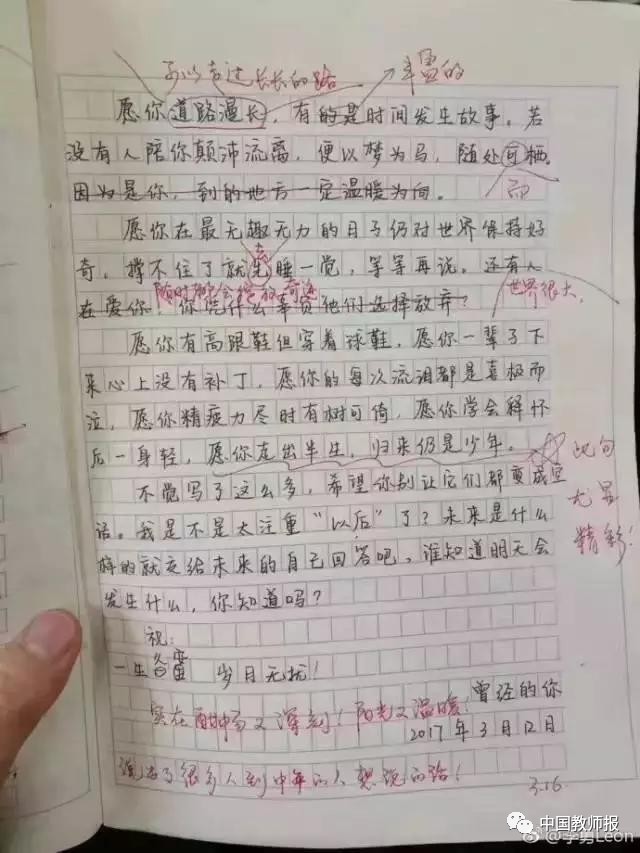 可以走过长长的路 丰盈的
愿你道路漫长,有的是时间发生故事。若
没有人陪你颠沛流离,便以梦为马,随处可栖。
因为是你,到的地方一定温暖为向。 而
愿你在最无趣无力的日子仍对世界保持好
奇,撑不住了就先睡一觉,等等再说。还有人
随时都会 奇迹
在爱你!你凭什么辜负他们选择放弃? 世界很大,
愿你有高跟鞋但穿着球鞋,愿你一辈子下
来心上没有补丁,愿你的每次流泪都是喜极而
泣,愿你精疲力尽时有树可倚,愿你学会释怀
后一身轻,愿你走出半生,归来仍是少年。 此句
尤显
精彩!
不觉写了这么多,希望你别让它们都变成空
话。我是不是太注重“以后”了?未来是什么
样的就交给未来的自己回答吧,谁知道明天会
发生什么,你知道吗?
祝:
一生 岁月无扰!
曾经的你
实在酣畅又深刻!阳光又温暖!
2017年3月12日
说出了很多人到中年的人想说的话!
3.16
中国教师报
@李勇Leon